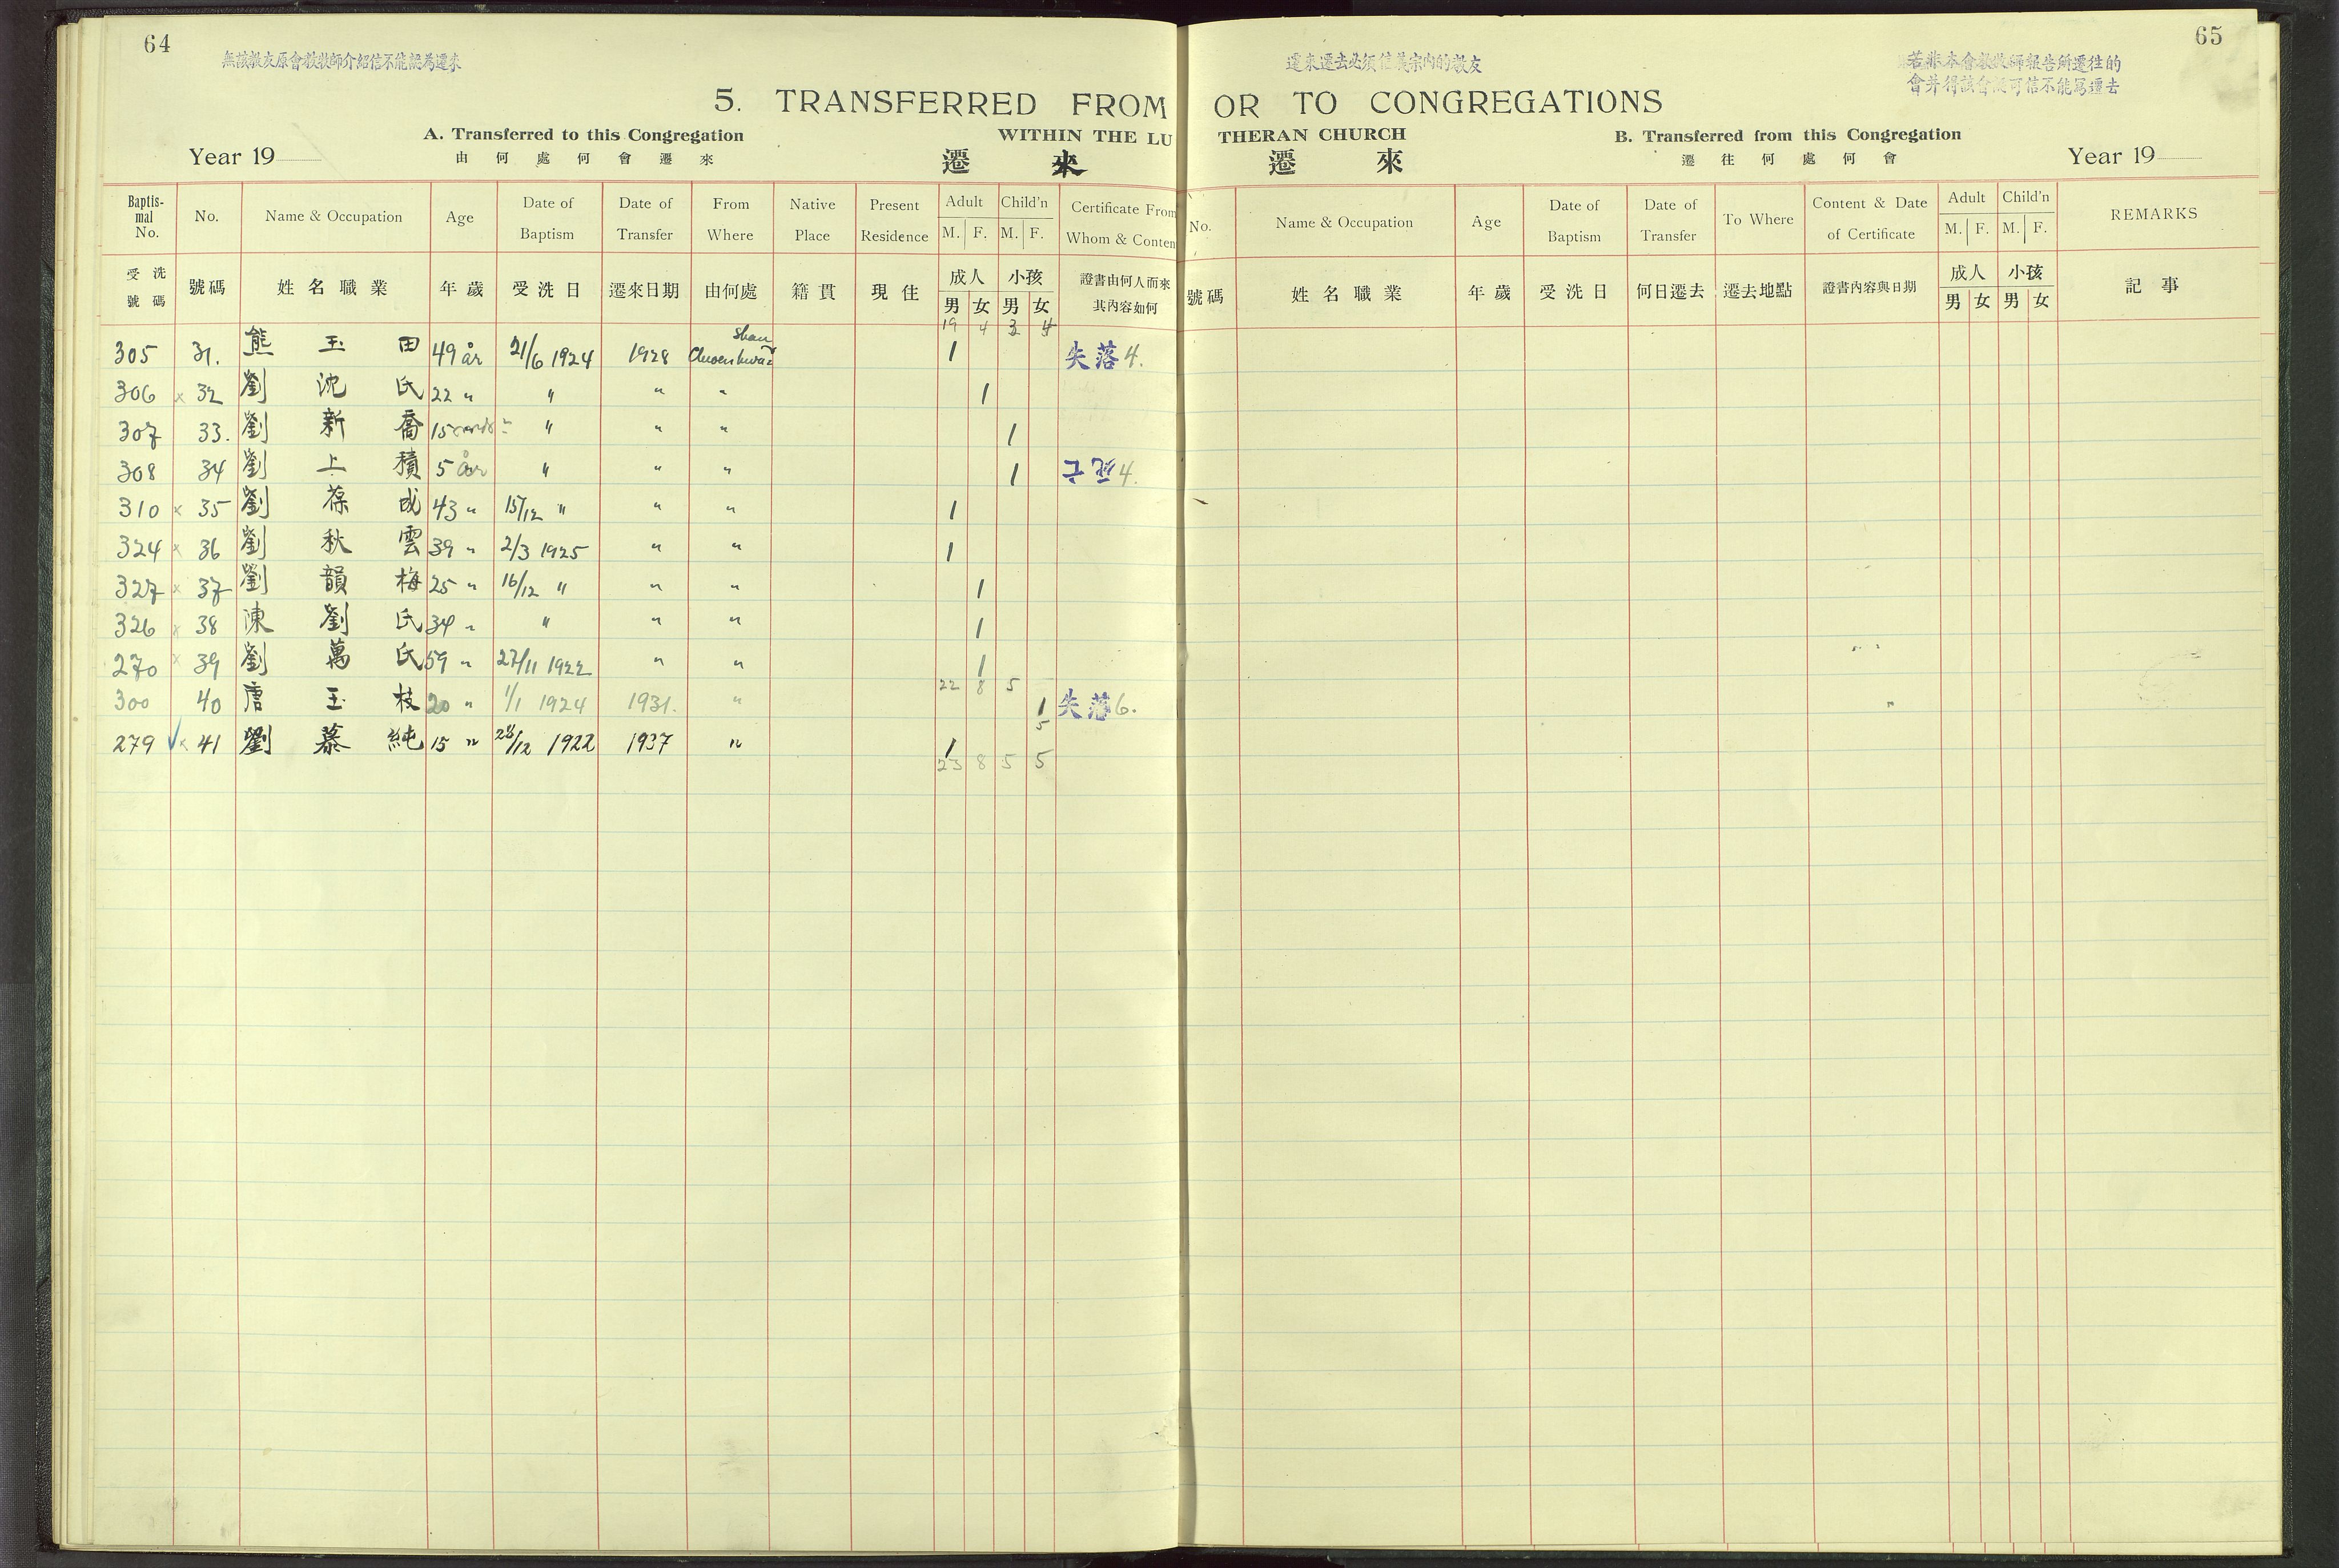 64
無該教友原會教牧師介紹信不能認為遷來
5. TRANSFERRED FROM
A. Transferred to this Congregation
WITHIN THE LU
Year 19
由何處何會遷來
遷來
Baptis-mal No. No. Name & Occupation Age Date of Baptism Date of Transfer From Where Native Place Present Residence Adult M. F. Child'n M. F. Certificate From Whom & Conten
受洗號碼 號碼 姓名職業 年歲 受洗日 遷來日期 由何處 籍貫 現住 成人 男 女 小孩 男 女 證書由何人而來其內容如何
19 4 3 4
305 31. 熊玉田 49 år 21/6 1924 1928 1 失落 4.
306 x 32 劉沈氏 22 " " " " 1
307 33. 劉新喬 15 " " " 1
308 34 劉上積 5 år " " " 1 死亡 4.
310 x 35 劉葆成 43 " 15/12 " " " 1
324 x 36 劉秋雲 39 " 2/3 1925 " " 1
327 x 37 劉韻梅 25 " 16/12 " " " 1
326 x 38 陳劉氏 34 " " " " 1
270 x 39 劉萬氏 59 " 27/11 1922 " " 1
22 8 5
300 40 唐玉枝 20 " 1/1 1924 1931. " 1 失落 6.
5
279 ✓ x 41 劉慕純 15 " 28/12 1922 1937 " 1
23 8 5 5
65
遷來遷去必須信義宗內的教友
若非本會教牧師報告所遷往的
會并得該會認可信不能寫遷去
OR TO CONGREGATIONS
THERAN CHURCH
B. Transferred from this Congregation
遷來
遷往何處何會
Year 19
No. Name & Occupation Age Date of Baptism Date of Transfer To Where Content & Date of Certificate Adult M. F. Child'n M. F. REMARKS
號碼 姓名職業 年歲 受洗日 何日遷去 遷去地點 證書內容與日期 成人 男 女 小孩 男 女 記事